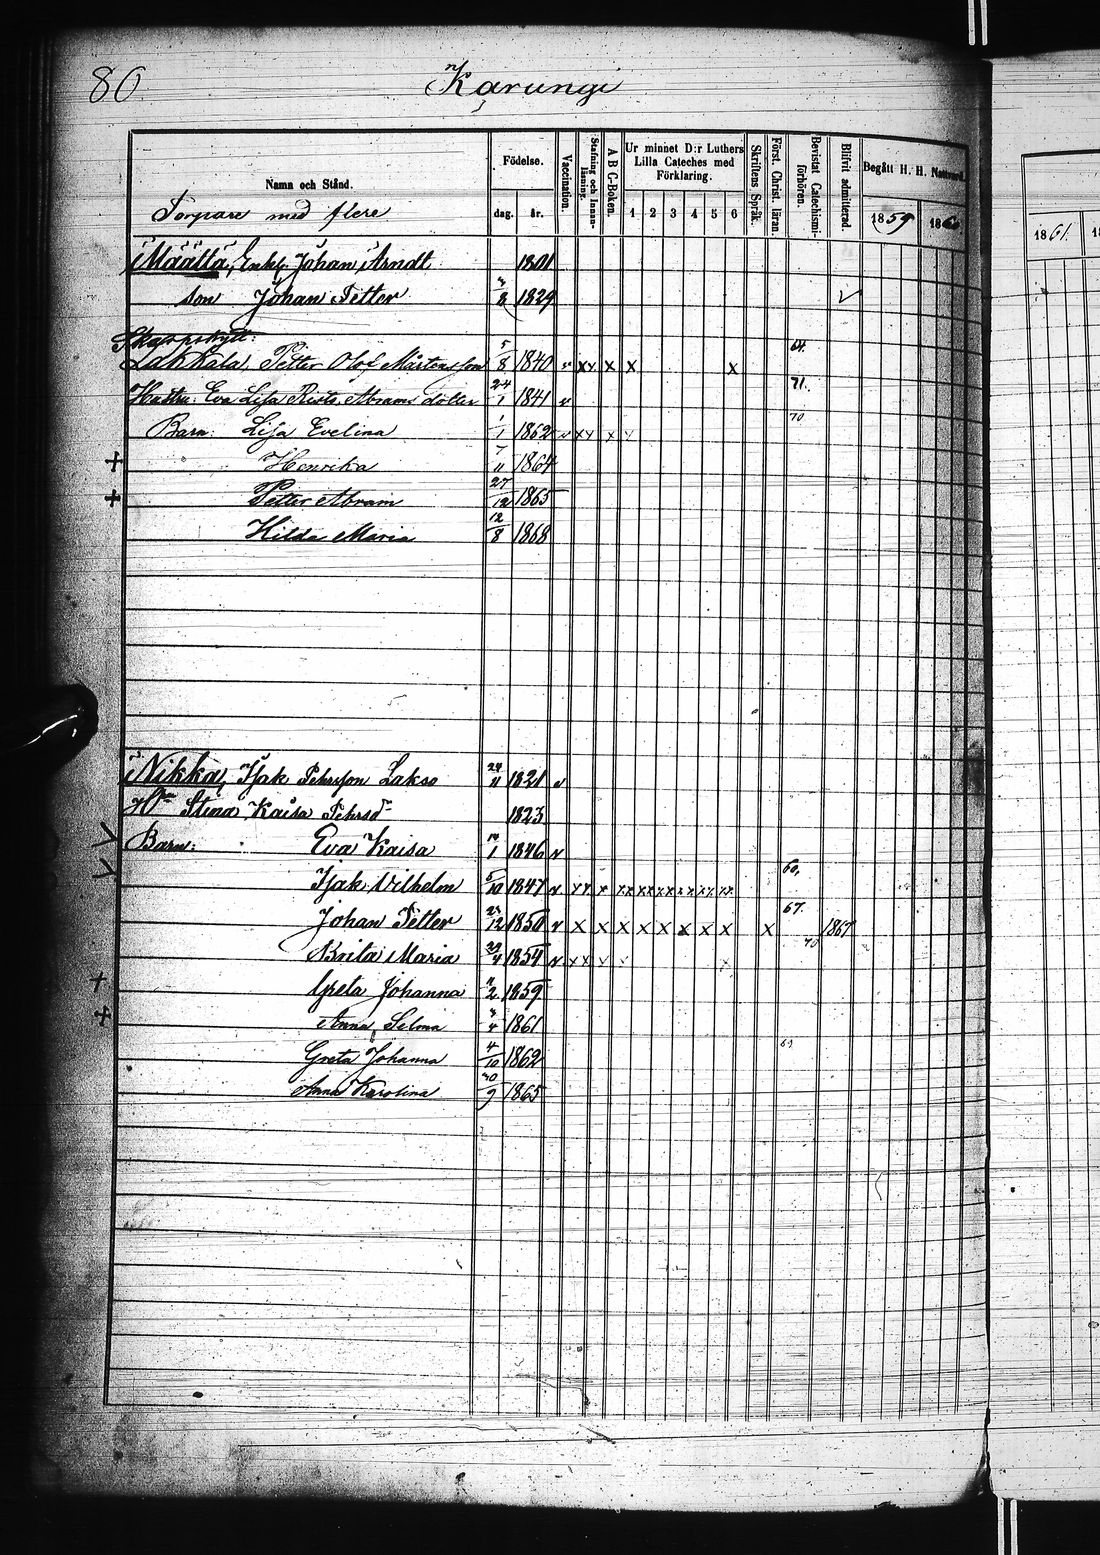 80 Karungi
Nama och Stånd. Födelse. dag. år. Vaccination. Stafning och Innanläsning. A B C-Boken. Ur minnet D:r Luthers Lilla Cateches med Förklaring. 1 2 3 4 5 6 Skriftens Språk. Först. Christ. läran. Bevistat Catechismiförhören. Blifvit admitterad. Begått H. H. Nattvard. 1859 186
1861.
Torpare med flere
Määttä, Enkl. Johan Arndt 1801
son Johan Petter 8 1829
Skarpskytt:
Lakkala, Petter Olof Mårtensson 5/8 1840 v x x x x x 64.
Hustru: Eva Lisa Abrams dotter 24/1 1841 v 71.
Barn: Lisa Evelina 1/1 1862 v x x x 70
+ Henrika 7/11 1864
+ Petter Abram 27/12 1865
Hilda Maria 12/8 1868
Nikka, Isak Pehrsson Lakso 24/11 1821 v
Hon Stina Kaisa Pehrsd 1823
Barn: Eva Kaisa 14/1 1846 v
Isak Vilhelm 5/10 1847 v x x x xx xx xx xx xx xx 60,
Johan Petter 12 1850 v x x x x x x x x x 67. 1867
Brita Maria 4 1854 v x x 70
+ Greta Johanna 2 1859
+ Anna Selma 4 1861
Greta Johanna 4/10 1862
Anna Karolina 9 1865